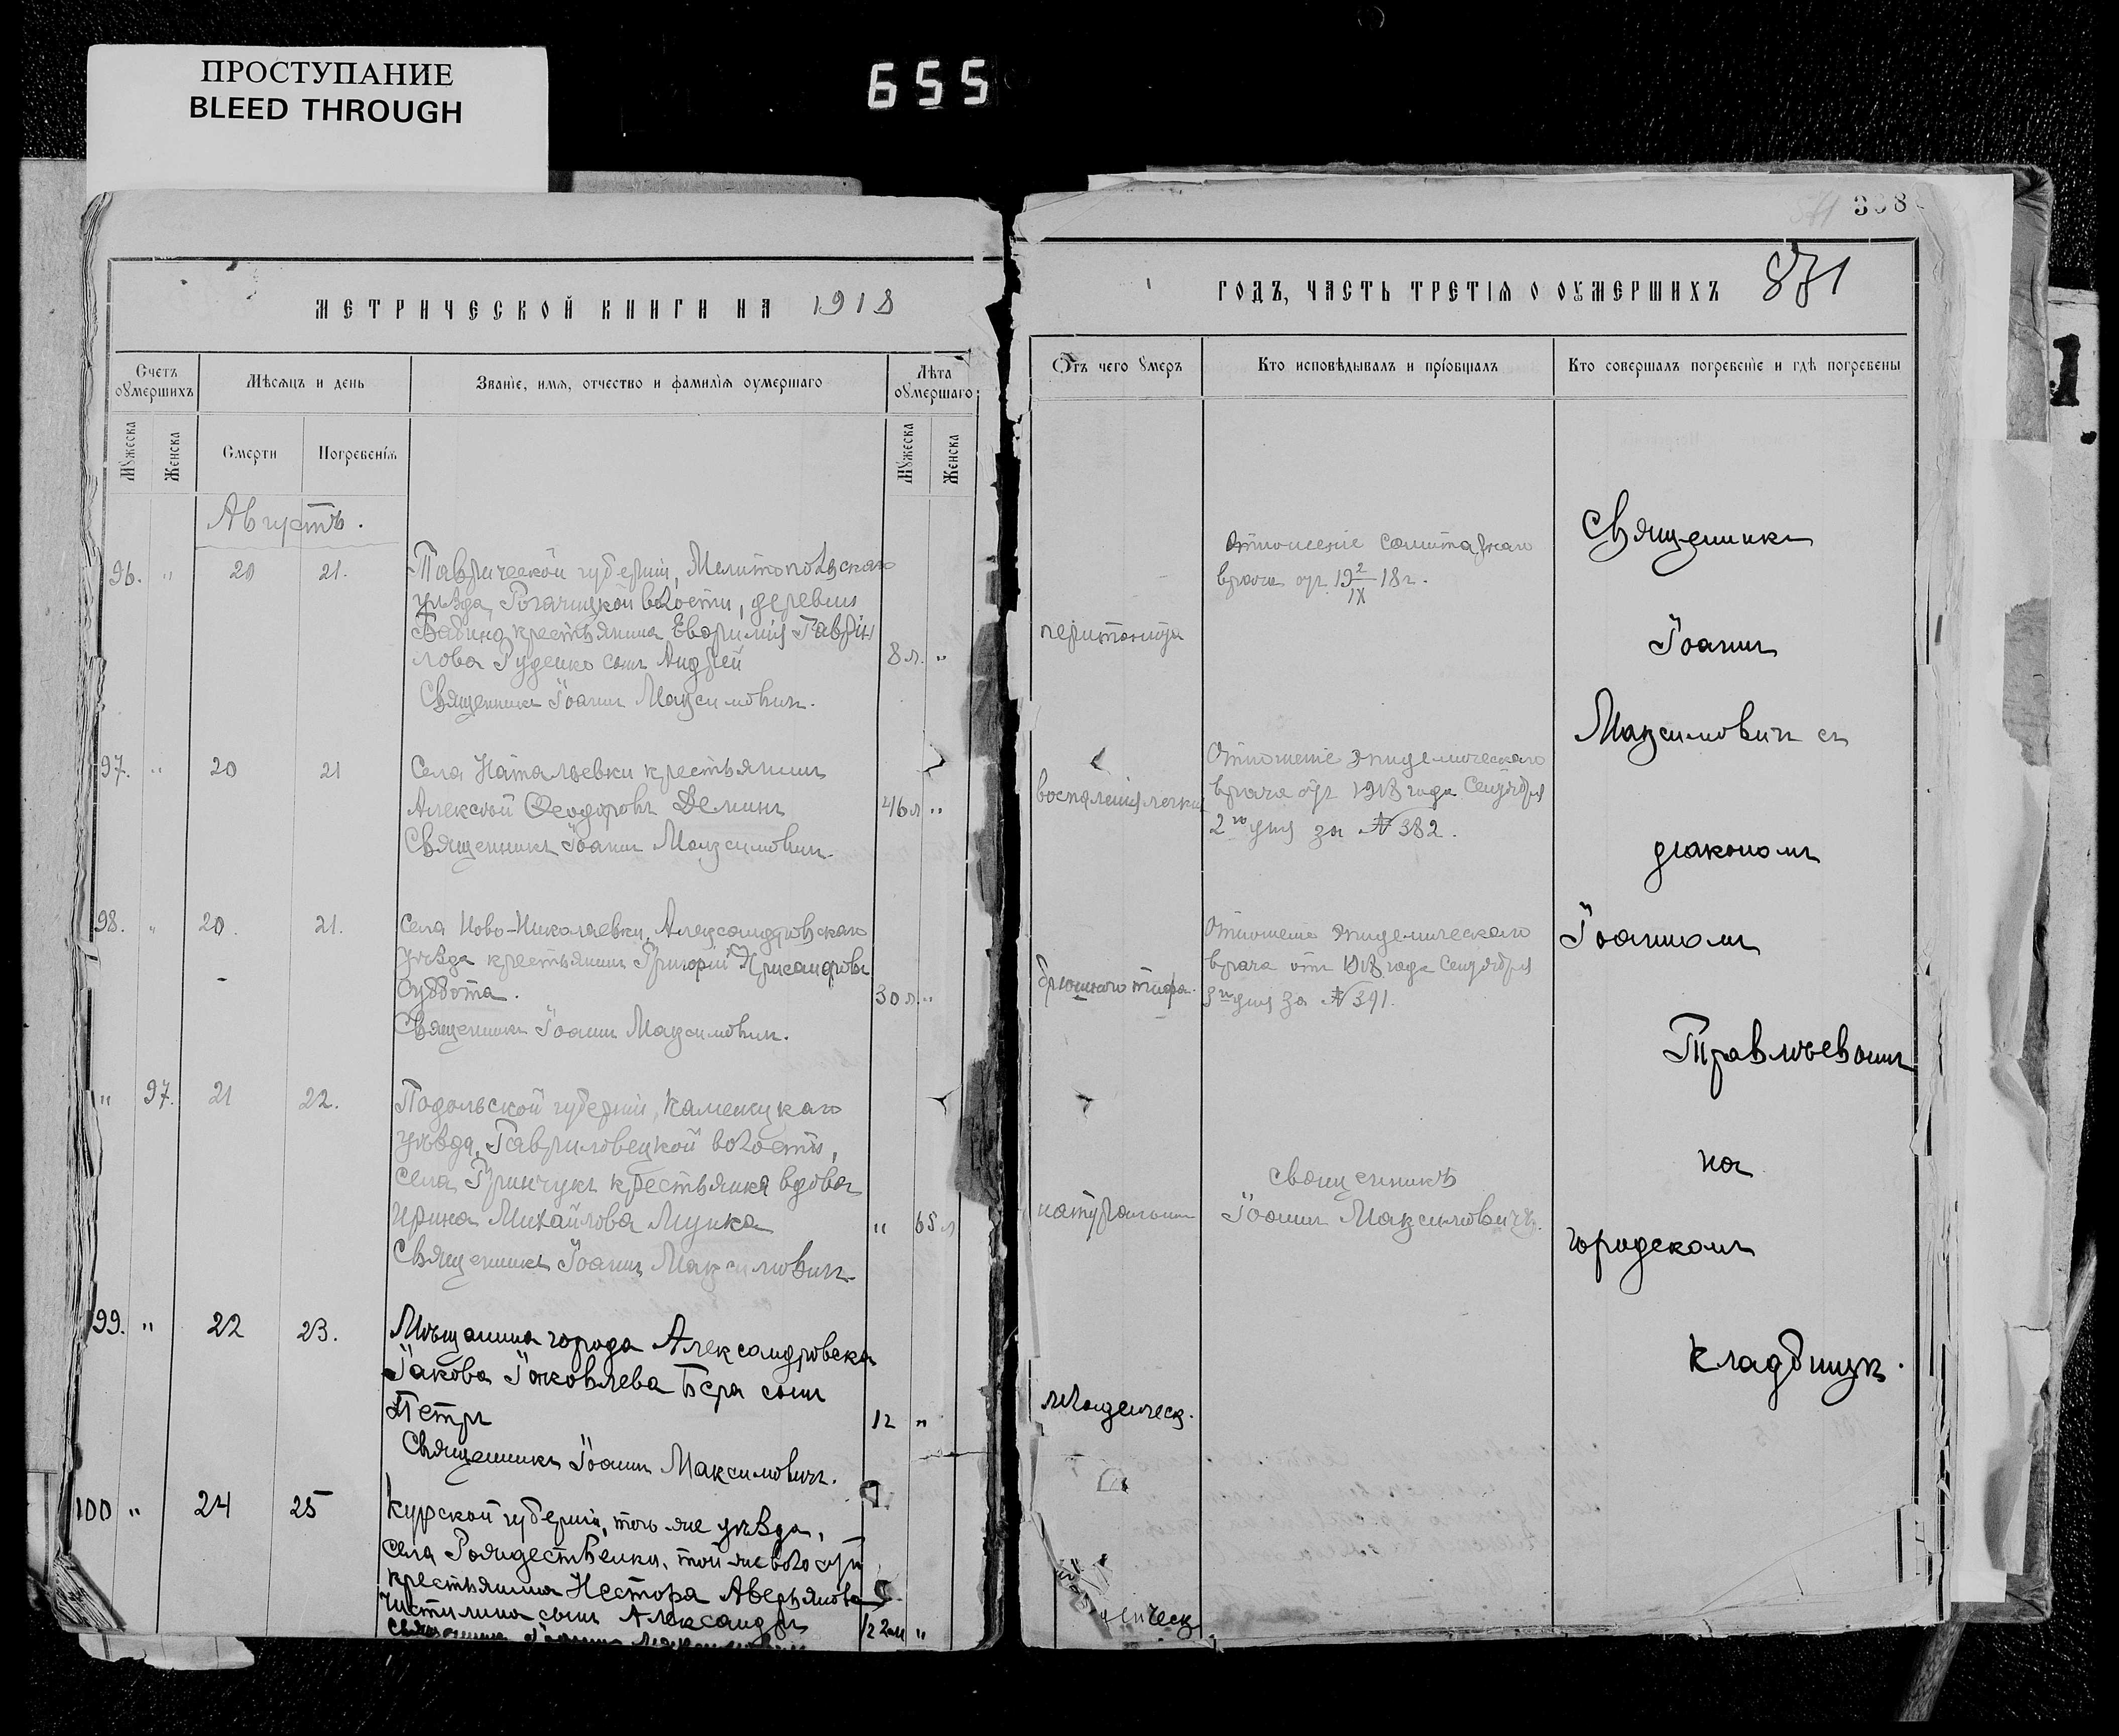 ПРОСТУПАНИЕ
BLEED THROUGH
655
МЕТРИЧЕСКОЙ КНИГИ НА 1918
Счетъ оумершихъ
Мѣсяцъ и день
Званіе, имя, отчество и фамилія оумершаго
Лѣта оумершаго
Мужеска
Женска
Смерти
Погребенія
Мужеска
Женска
Августъ.
96. " 20 21. Таврической губерніи, Мелитопольскаго
уѣзда, Рогачицкой волости, деревни
крестьянина Гаврiи
лова Руденко сынъ Андрей 8 л. "
Священникъ Іоаннъ Максимовичъ.
97. " 20 21 Села Натальевки крестьянинъ
Алексѣй Ѳеодоровъ Деминъ 46 л "
Священникъ Іоаннъ Максимовичъ.
98. " 20. 21. Села Ново-Николаевки, Александровскаго
уѣзда крестьянинъ Григорій
Суббота. 30 л. "
Священникъ Іоаннъ Максимовичъ.
" 97. 21 22. Подольской губерніи, Каменецкаго
уѣзда, Гавриловецкой волости,
села Гринчукъ крестьянка вдова
Ирина Михайлова " 65 л
Священникъ Іоаннъ Максимовичъ.
99. " 22 23. Мѣщанина города Александровска
Іакова Іаковлева сынъ
Петръ 12 "
Священникъ Іоаннъ Максимовичъ.
100 " 24 25 Курской губерніи, того же уѣзда,
села Рождественки, той же волости
крестьянина Нестора Аверьянова
сынъ Александръ "
Священникъ Іоаннъ Максимовичъ
308
ГОДЪ, ЧАСТЬ ТРЕТІЯ О ОУМЕРШИХЪ 871
Отъ чего умеръ
Кто исповѣдывалъ и пріобщалъ
Кто совершалъ погребеніе и гдѣ погребены
Отношеніе санитарнаго
врача отъ 19 2/IX 18 г.
перитонита
воспаленія легких
Отношеніе эпидемическаго
врача отъ 1918 года Сентября
2го дня за № 382.
брюшного тифа.
Отношеніе эпидемическаго
врача отъ 1918 года Сентября
дня за № 391.
натуральн
Священникъ
Іоаннъ Максимовичъ.
младенческ.
енческ
Священникъ
Іоаннъ
Максимовичъ съ
діакономъ
Іоанномъ
на
городскомъ
кладбищѣ.